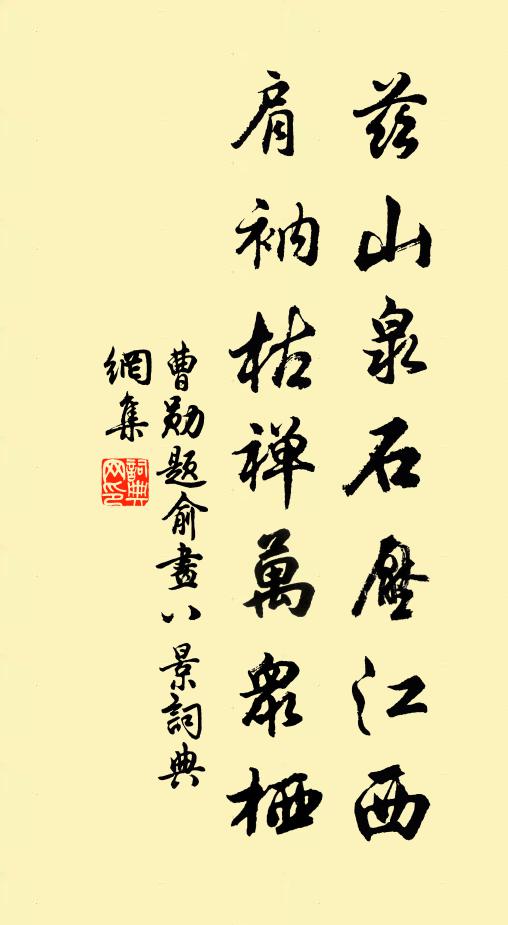 茲山泉石壓江西
肩衲枯禅萬眾栖
曹勛題俞畫八景詞典
網集
詞典網印